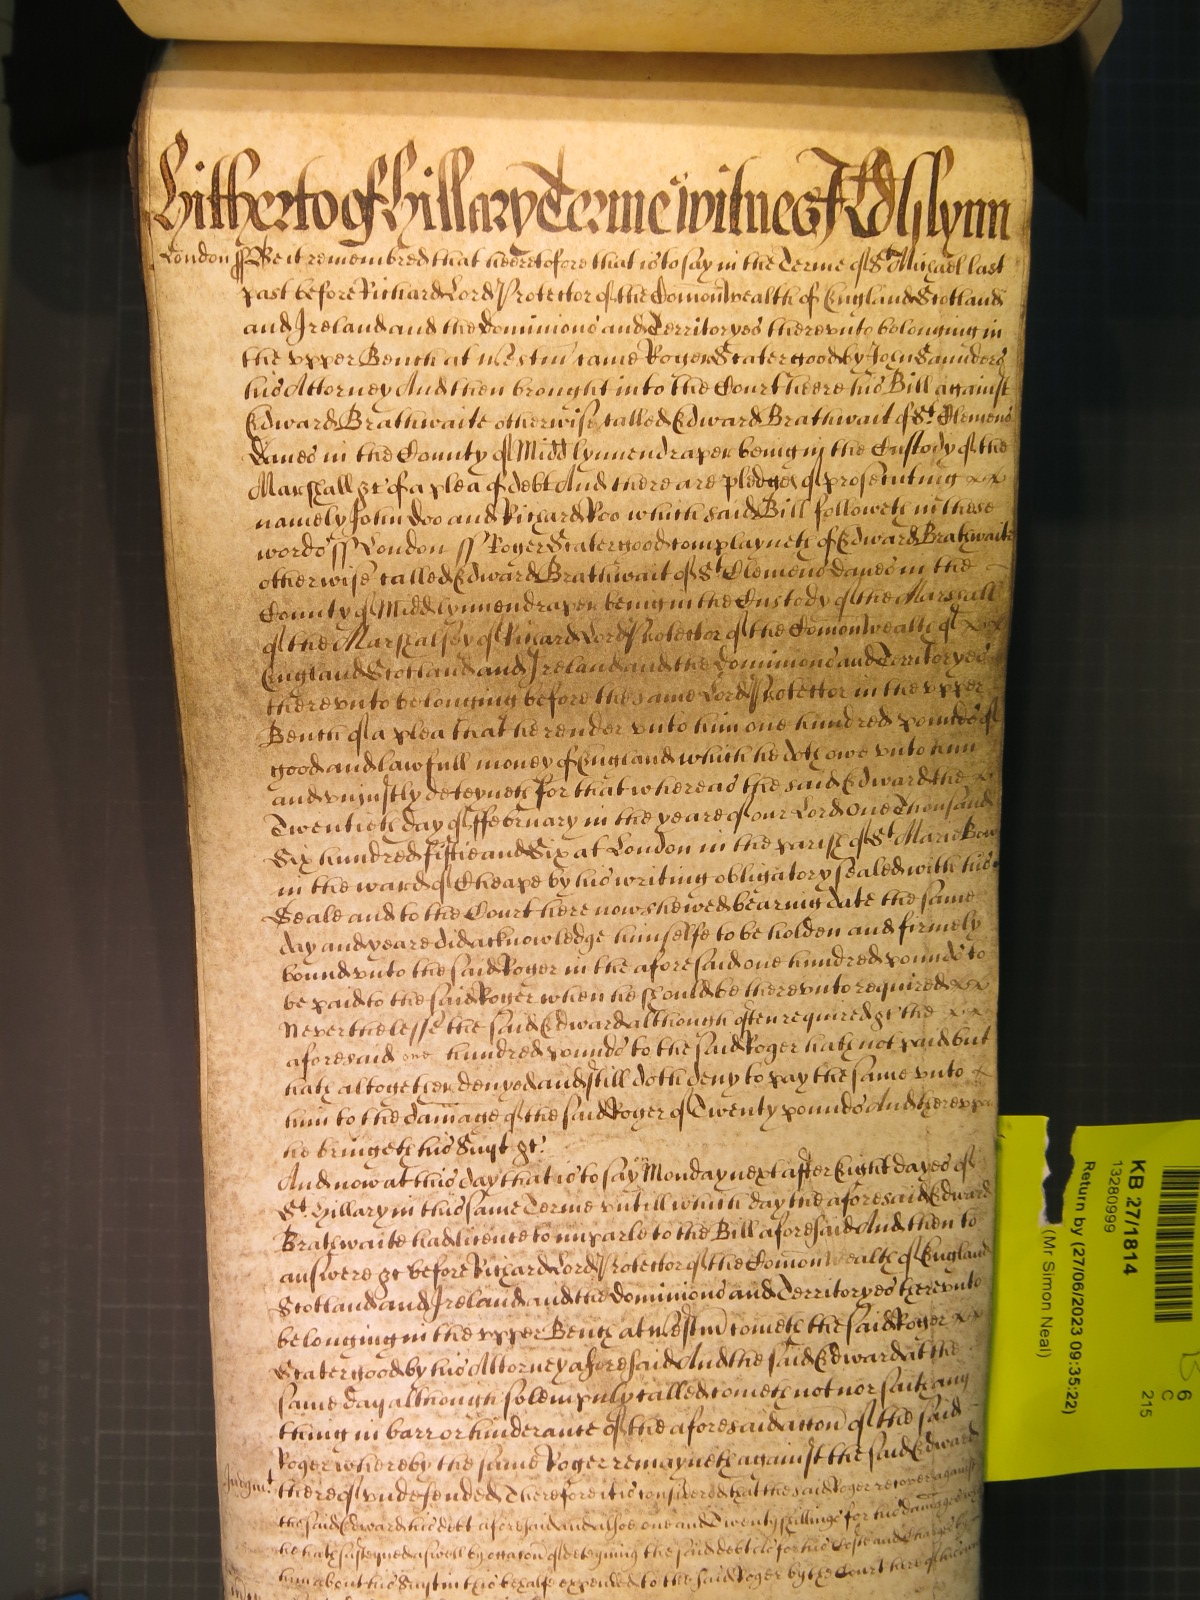 Hitherto of Hillary Terme witnes R Glynn
London ss Be it remembred that heeretofore that is to say in the Terme of St Michael last
past before Richard Lord Protector of the Comonwealth of England Scotland
and Ireland and the Dominions and Territoryes therevnto belonging in
the vpper Bench at Westm came Roger Scatergood by John Saunders
his Attorney And then brought into the Court heere his Bill against
Edward Brathwaite otherwise called Edward Brathwait of St Clemens
Danes in the County of Midd lynnendraper being in the Custody of the
Marshall &c of a plea of debt And there are pledges of prosecuting
namely John Doo and Richard Roo which said Bill followeth in these
words ss London ss Roger Scatergood complayneth of Edward Brathwaite
otherwise called Edward Brathwait of St Clemens danes in the
County of Midd lynnendraper being in the Custody of the Marshall
of the Marshalsey of Richard Lord Protector of the Comonwealth of
England Scotland and Ireland and the Dominions and Territoryes
therevnto belonging before the same Lord Protector in the vpper
Bench of a plea that he render vnto him one hundred pounds of
good and lawfull money of England which he doth owe vnto him
and vniustly deteyneth for that whereas the said Edward the
Twentieth day of ffebruary in the yeare of our Lord One Thousand
Six hundred fiftie and Six at London in the parish of St Marie Bow
in the ward of Cheape by his writing obligatory sealed with his
Seale and to the Court here now shewed bearing date the same
day and yeare did acknowledge himselfe to be holden and firmely
bound vnto the said Roger in the aforesaid one hundred pounds to
be paid to the said Roger when he should be therevnto required
Neverthelesse the said Edward although often required &c the
aforesaid one hundred pounds to the said Roger hath not paid but
hath altogether denyed and still doth deny to pay the same vnto
him to the damage of the said Roger of Twenty pounds And therevpon
he bringeth his Suyt &c
And now at this day that is to say Monday next after Eight dayes of
St Hillary in this same Terme vntill which day the aforesaid Edward
Brathwaite had licence to imparle to the Bill aforesaid And then to
answere &c before Richard Lord Protector of the Comonwealth of England
Scotland and Ireland and the Dominions and Territoryes therevnto
belonging in the vpper Bench at Westm cometh the said Roger
Scatergood by his Attorney aforesaid And the said Edward at the
same day although solempnly called cometh not nor saith any
thing in barr or hinderance of the aforesaid accon of the said
Roger whereby the same Roger remayneth against the said Edward
Judgmt thereof vndefended Therefore it is considered that the said Roger recover against
the said Edward his debt aforesaid and alsoe one and Twenty shillings for his damages wch
he hath susteyned aswell by occacon of deteyning the said debt as for his Costs and Charges by
him about his Suyt in this behalfe expended to the said Roger by the Court here of his
KB 27/1814
13280999
Return by (27/06/2023 09:35:22)
(Mr Simon Neal)
6
C
215